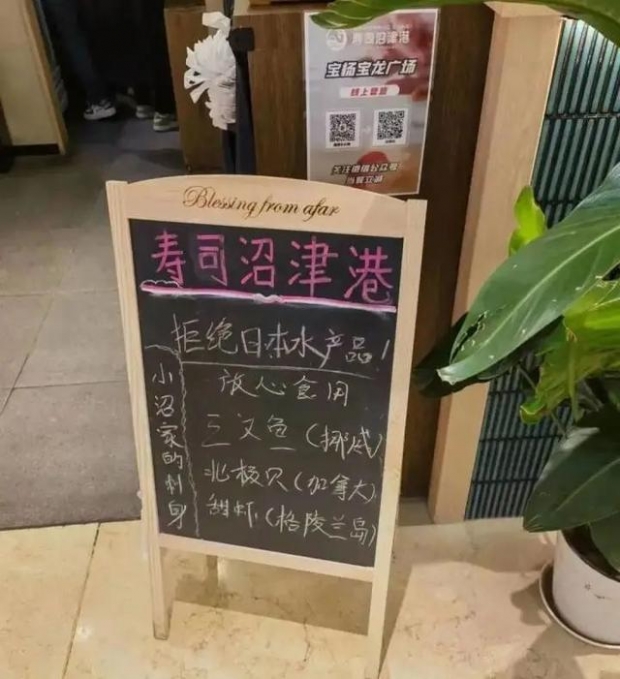 寿司沼津港
宝杨宝龙广场
线上登位
关注微信公众号
Blessing from afar
寿司沼津港
拒绝日本水产品！
放心食用
小沼家的刺身
三文鱼（挪威）
北极贝（加拿大）
甜虾（格陵兰岛）